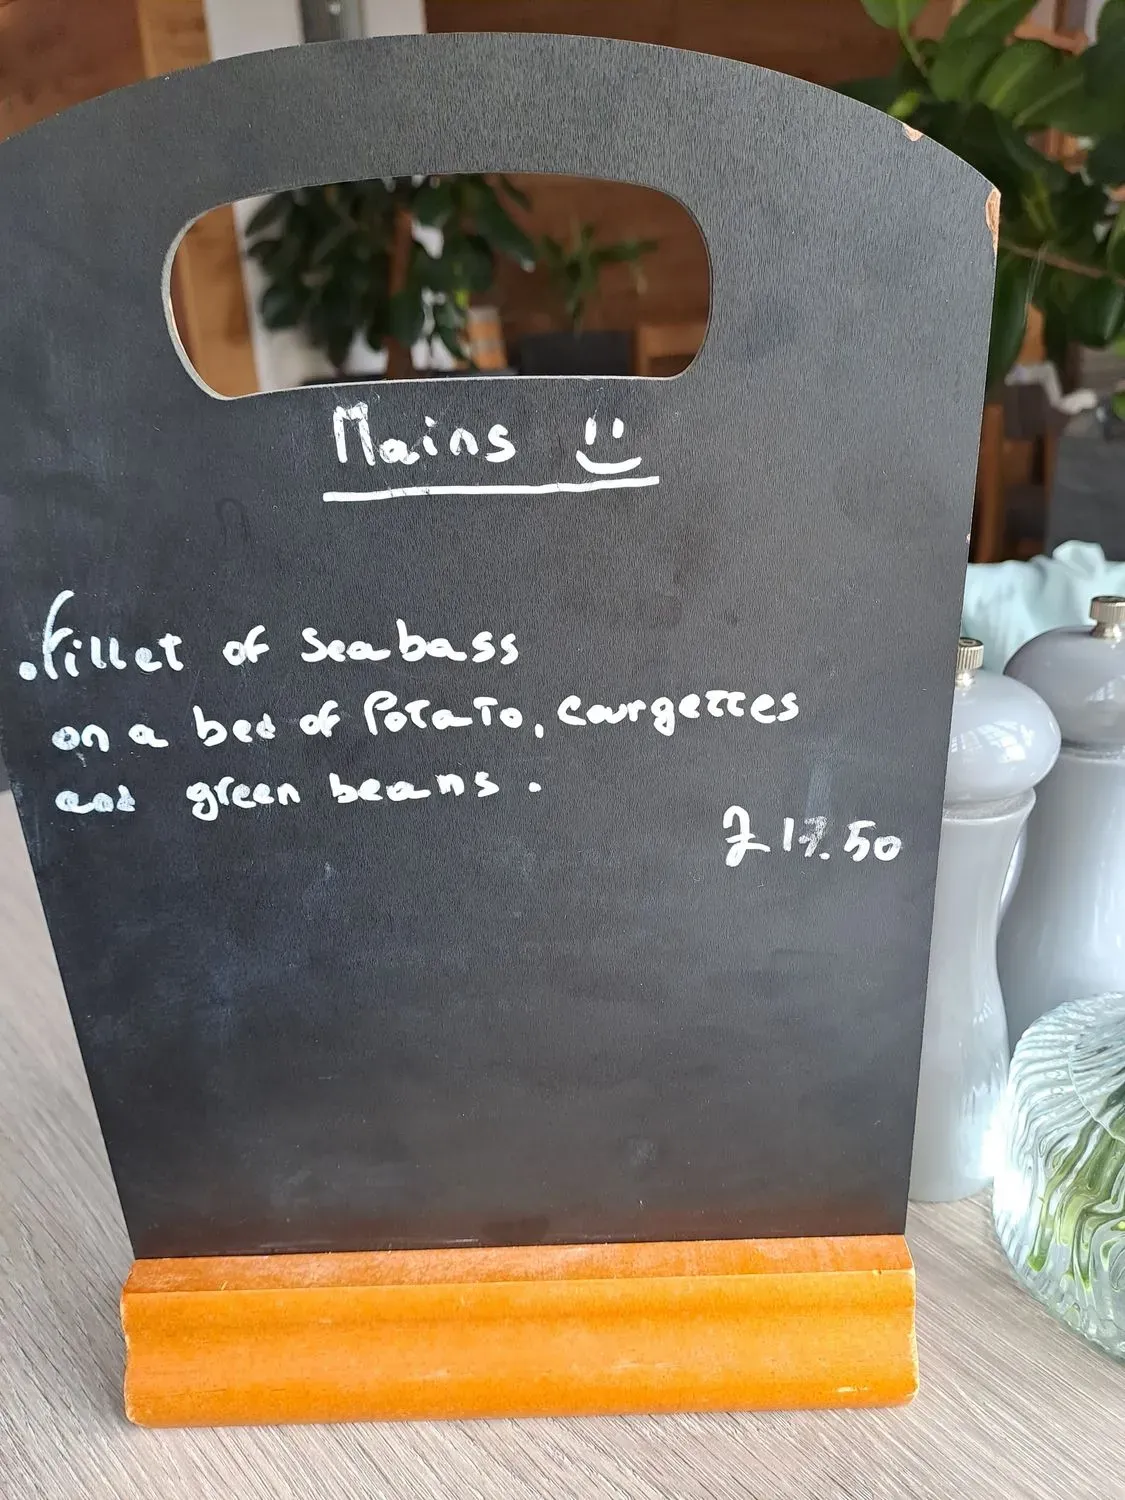 Mains
.fillet of seabass
on a bed of Potato, courgettes
and green beans.
£17.50